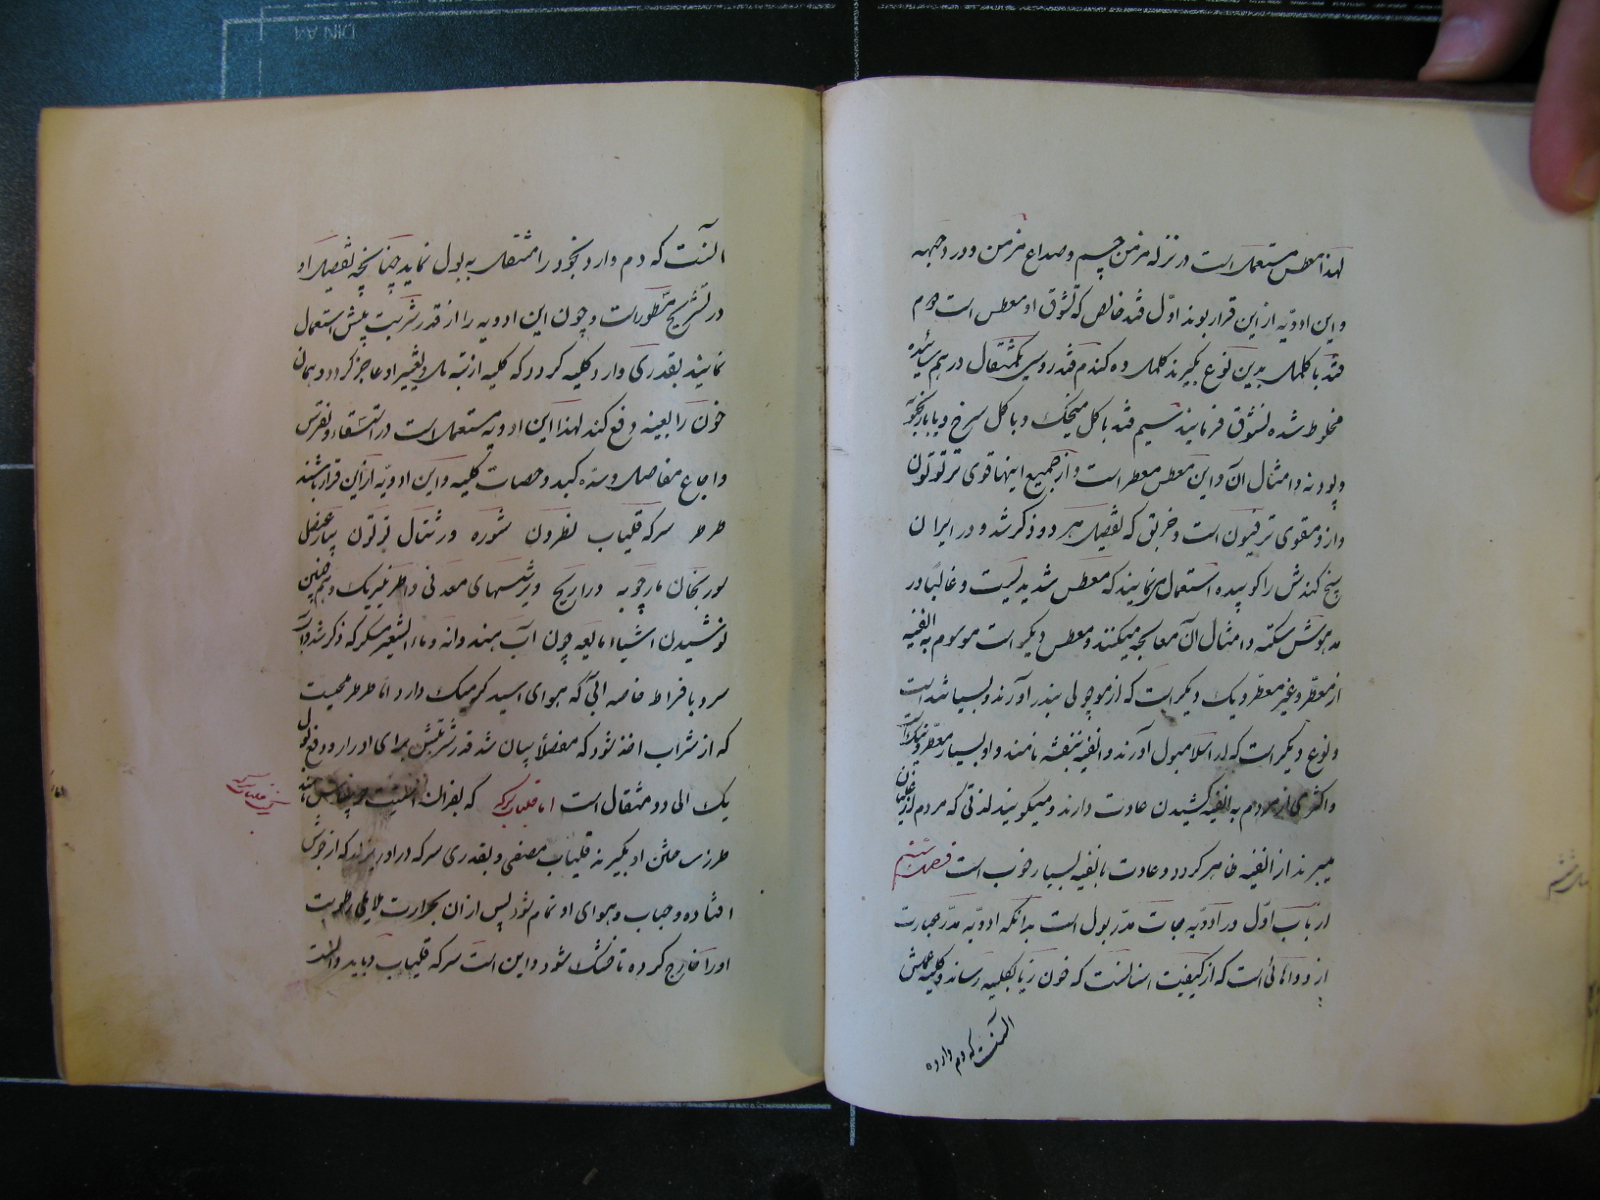 لهذا معطس مستعمل است در نزله مزمن چشم و صداع مزمن و درد جبهه
و این ادویه از این قرار بوند اوّل قند خالص که نشوق او معطس است دوم
قند با کلمل بدین نوع بگیرند کلمل ده گندم قند روسی یکمثقال در هم سائیده
مخلوط شده نشوق فرمایند سیم قند با گل میخک و با گل سرخ و یا بادرنجبویه
و پودنه و امثال آن و این معطس معطر است و از جمیع اینها قوی تر توتون
و از و مقوی تر فیون است و خربق که تفصیل هر دو ذکر شد و در ایران
بیخ کندش را کوبیده استعمال می‌نمایند که معطس شدیدیست و غالباً در
مدهوش سکته و امثال آن معالجه میکنند و معطس دیگر است موسوم به انفیه
از معطّر و غیر معطّر و یک دیگر است که از موچولی بندر آورند و بسیار تند است
و نوع دیگر است که از اسلامبول آورند و انفیه بنفشه نامند و او بسیار معطّر و نیک است
و اکثری از مردم به انفیه کشیدن عادت دارند و میگویند لذتی که مردم از غلیان
میبرند از انفیه ظاهر گردد و عادت بانفیه بسیار خوب است فصل ششم
از باب اوّل در ادویه جات مدّر بول است بدانکه ادویه مدّر عبارت
از دواهائی است که از کیفیت آنها آنست که خون زیاد بکلیه رساند و کلیه عملش
آنست که دم وارده
آنست که دم وارد بخود را منتقل به بول نماید چنانچه تفصیل او
در تشریح مسطور است و چون این ادویه را از قدر شربت بیش استعمال
نمایند بقدری وارد کلیه گردد که کلیه از تبدیل و تغییر او عاجز گردد و همان
خون را بعینه دفع کند لهذا این ادویه مستعمل است در استسقاء و نقرس
و اوجاع مفاصل و سدّه کبد و حصات کلیه و این ادویه از این قرار باشند
طرطر سرکه قلیاب نطرون شوره ورشتال توتون پیاز عنصل
سورنجان مارچوبه ذراریح و ترشیهای معدنی و اطرنیریک و هم چنین
نوشیدن اشیاء مایعه چون آب هندوانه و ماء الشعیر مسکر که ذکر شد و آب
سرد با فراط خاصه آبی که هوای اسید کربنیک دارد اما طرطر محبیت
که از شراب اخذ شود که مفصلاً بیان شد قدر شربتش برای ادرار و دفع بول
یک الی دو مثقال است اما قلیاب سرکه که بفرانسه
طرز ساختن او بگیرند قلیاب مصفی و بقدری سرکه در او بریزند که از جوش
افتاده و حباب و هوای او تمام شود پس از آن بحرارت ملایمی رطوبت
او را خارج کرده تا خشک شود و این است سرکه قلیاب و باید دانست